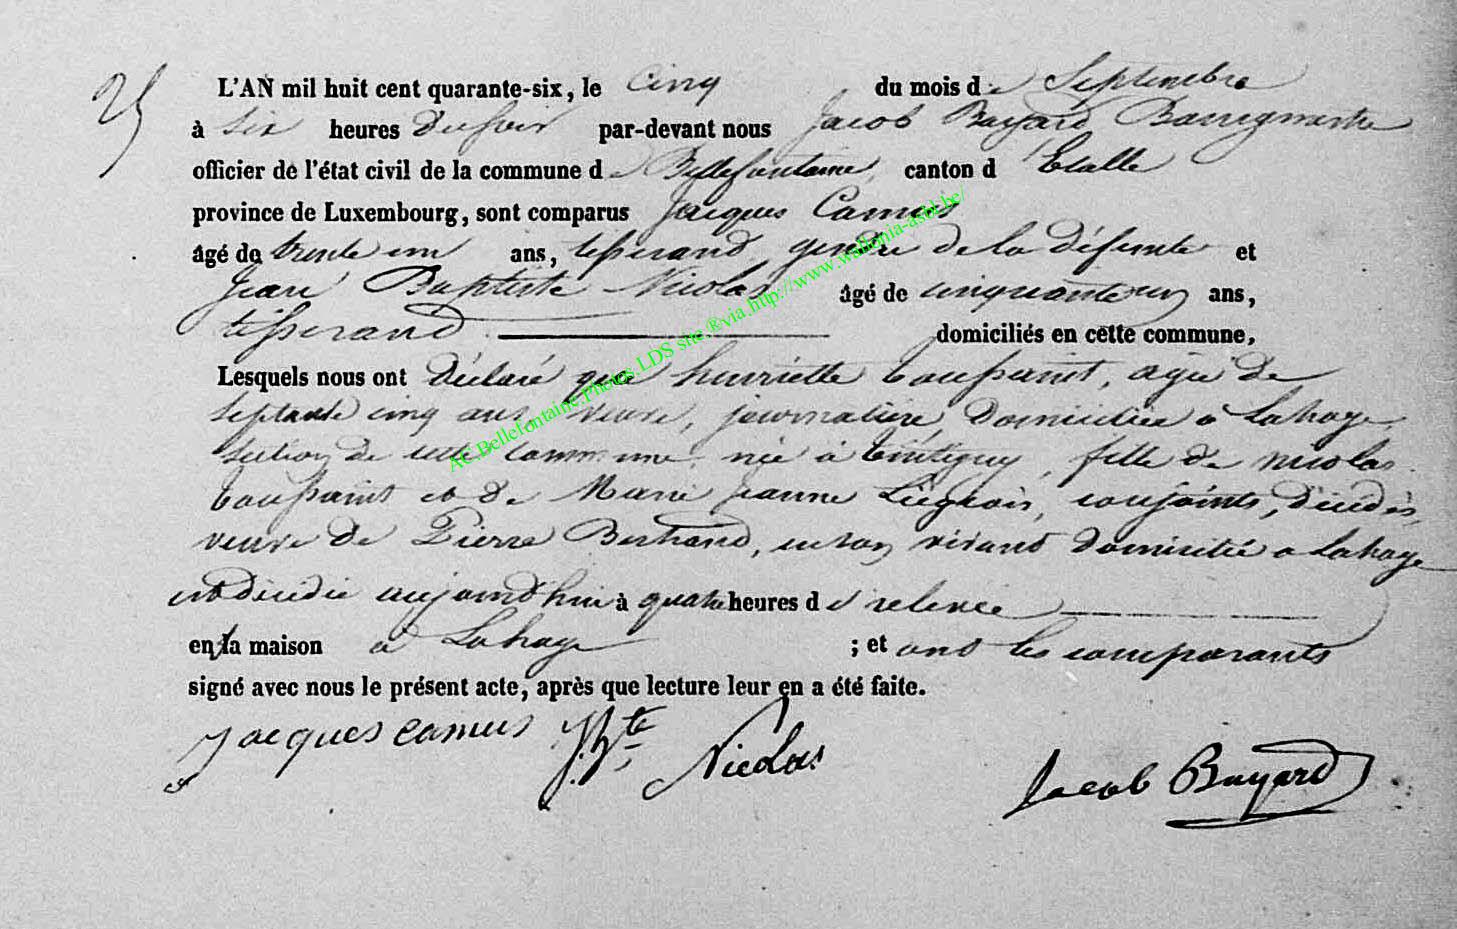 25
L'AN mil huit cent quarante-six, le Cinq du mois de Septembre
à Six heures du soir par-devant nous Jacob Bayard Bourgmestre
officier de l'état civil de la commune de Bellefontaine, canton d'Etalle
province de Luxembourg, sont comparus Jacques Camus
âgé de trente un ans, tisserand, gendre de la défunte et
Jean Baptiste Nicolas âgé de cinquante un ans,
tisserand domiciliés en cette commune,
Lesquels nous ont déclaré que henriette toussaint, agée de
septante cinq ans, veuve, journalière, domiciliée a Lahage,
Section de cette commune, née à tintigny, fille de nicolas
toussaint et de Marie Jeanne Liégeois, conjoints, décédés,
veuve de Pierre Bertrand, en son vivant domicilié a Lahage
est décédée aujourd'hui à quatre heures de relevée
en la maison a Lahage ; et ont les comparants
signé avec nous le présent acte, après que lecture leur en a été faite.
Jacques camus J. Bte Nicolas
Jacob Bayard
AC.Bellefontaine.Photos.LDS site ®via.http://www.wallonia-asbl.be/